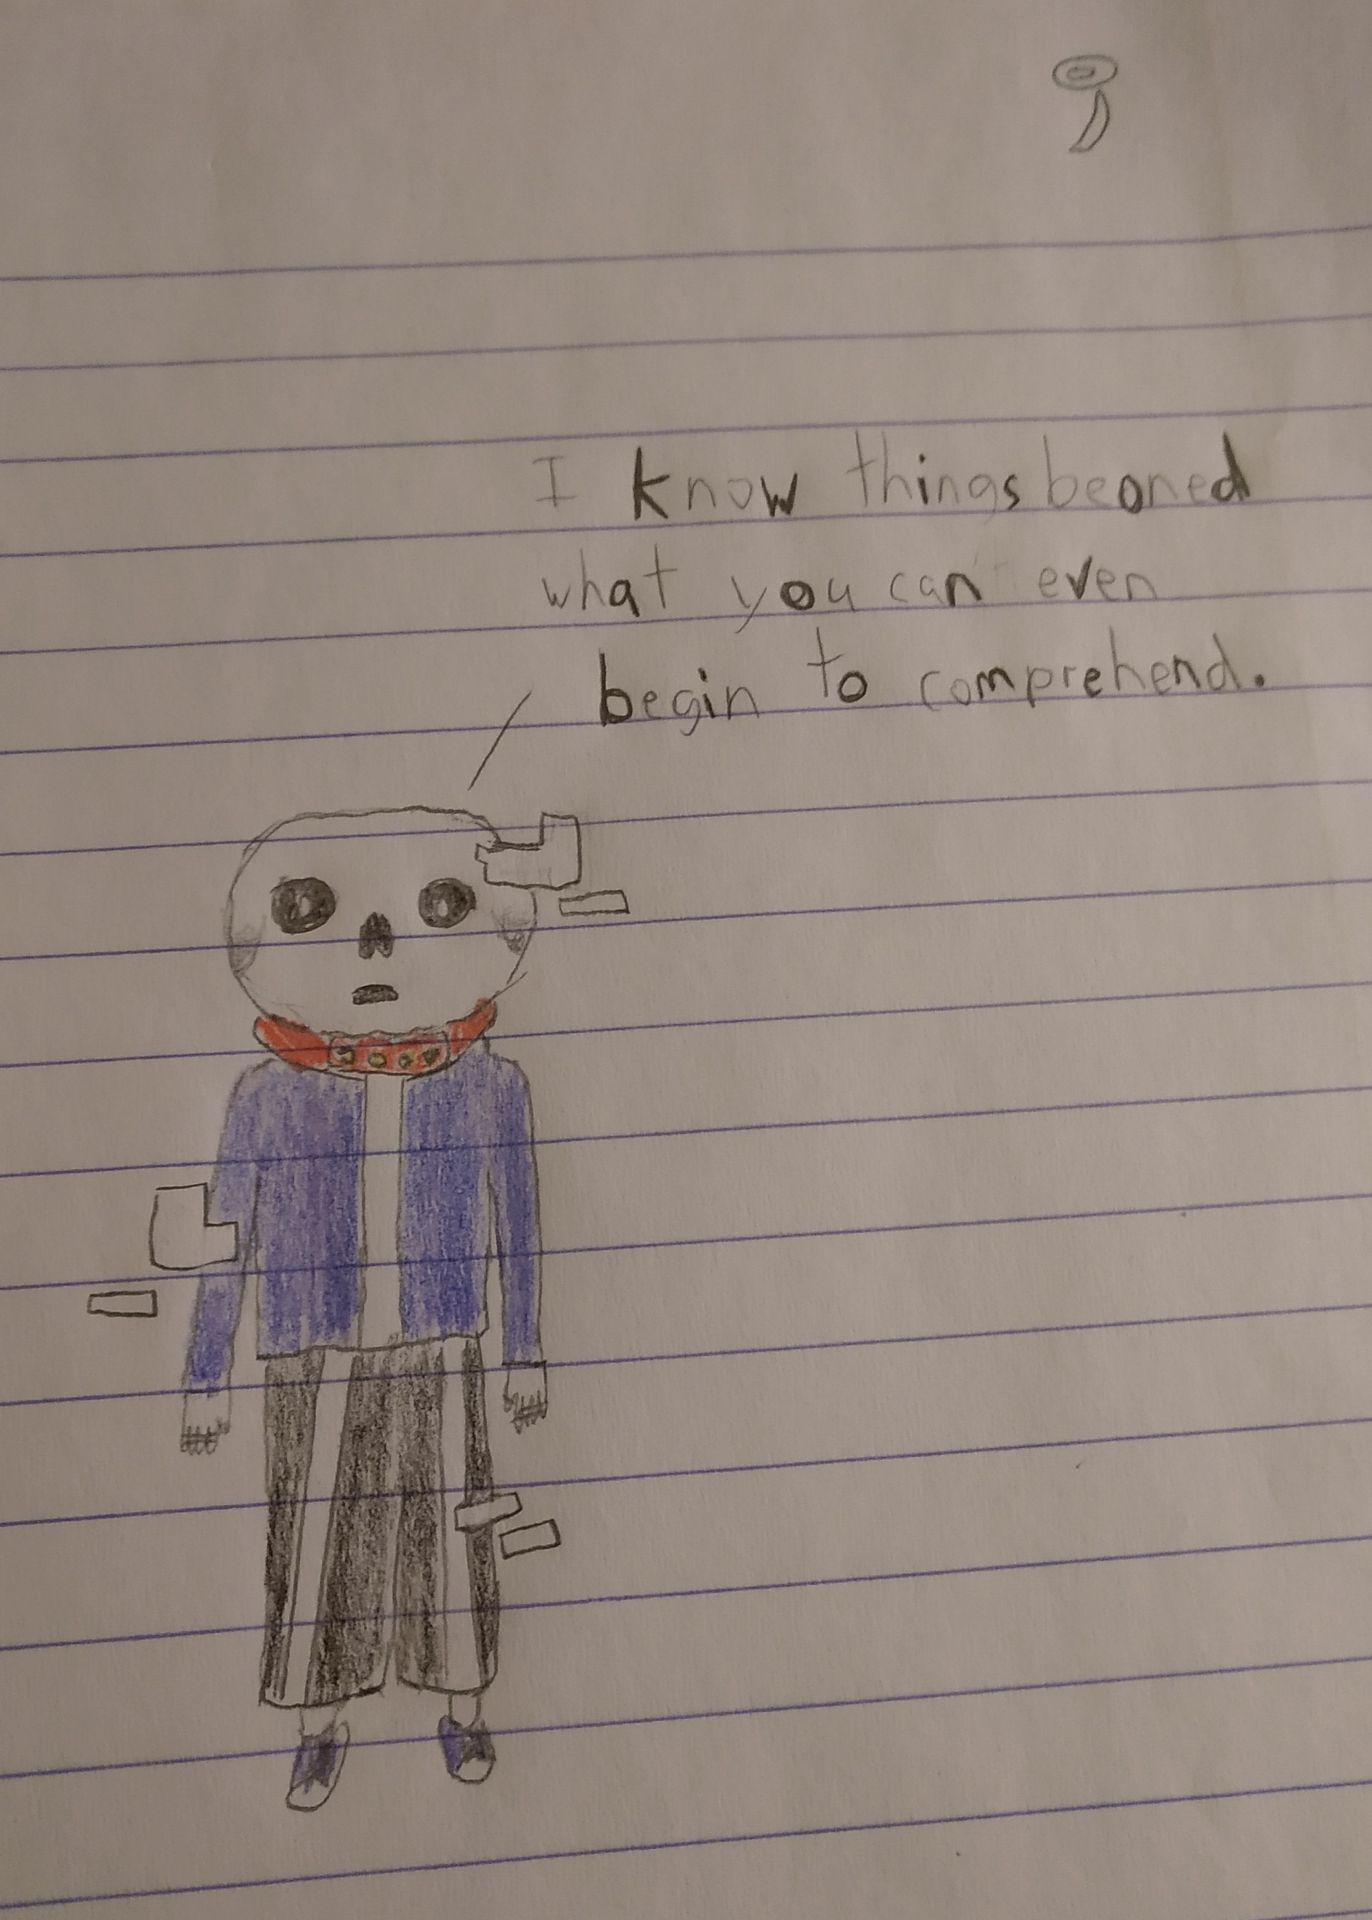 I know things beoned
what you can even
begin to comprehend.